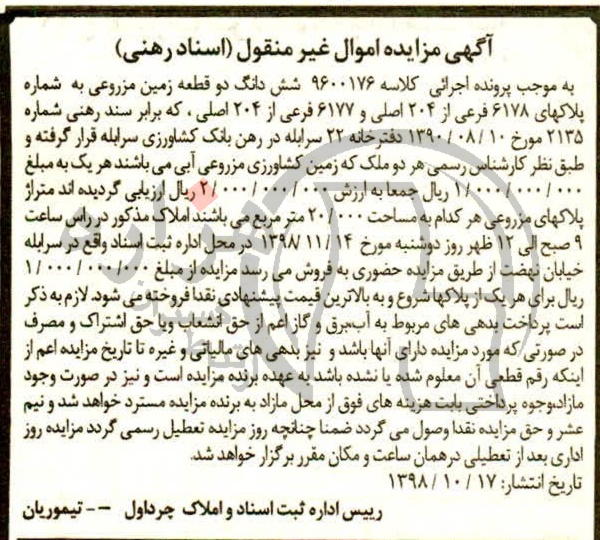 آگهی مزایده اموال غیر منقول (اسناد رهنی)
به موجب پرونده اجرائی کلاسه ۹۶۰۰۱۷۶ شش دانگ دو قطعه زمین مزروعی به شماره
پلاکهای ۶۱۷۸ فرعی از ۲۰۴ اصلی و ۶۱۷۷ فرعی از ۲۰۴ اصلی ، که برابر سند رهنی شماره
۲۱۳۵ مورخ ۱۳۹۰/۰۸/۱۰ دفترخانه ۲۲ سرابله در رهن بانک کشاورزی سرابله قرار گرفته و
طبق نظر کارشناس رسمی هر دو ملک که زمین کشاورزی مزروعی آبی می باشند هر یک به مبلغ
۱/۰۰۰/۰۰۰/۰۰۰ ریال جمعا به ارزش ۲/۰۰۰/۰۰۰/۰۰۰ ریال ارزیابی گردیده اند متراژ
پلاکهای مزروعی هر کدام به مساحت ۲۰/۰۰۰ متر مربع می باشند املاک مذکور در راس ساعت
۹ صبح الی ۱۲ ظهر روز دوشنبه مورخ ۱۳۹۸/۱۱/۱۴ در محل اداره ثبت اسناد واقع در سرابله
خیابان نهضت از طریق مزایده حضوری به فروش می رسد مزایده از مبلغ ۱/۰۰۰/۰۰۰/۰۰۰
ریال برای هر یک از پلاکها شروع و به بالاترین قیمت پیشنهادی نقدا فروخته می شود. لازم به ذکر
است پرداخت بدهی های مربوط به آب،برق و گاز اعم از حق انشعاب ویا حق اشتراک و مصرف
در صورتی که مورد مزایده دارای آنها باشد و نیز بدهی های مالیاتی و غیره تا تاریخ مزایده اعم از
اینکه رقم قطعی آن معلوم شده یا نشده باشد به عهده برنده مزایده است و نیز در صورت وجود
مازاد،وجوه پرداختی بابت هزینه های فوق از محل مازاد به برنده مزایده مسترد خواهد شد و نیم
عشر و حق مزایده نقدا وصول می گردد ضمنا چنانچه روز مزایده تعطیل رسمی گردد مزایده روز
اداری بعد از تعطیلی درهمان ساعت و مکان مقرر برگزار خواهد شد.
تاریخ انتشار: ۱۳۹۸/۱۰/۱۷
رییس اداره ثبت اسناد و املاک چرداول -- تیموریان